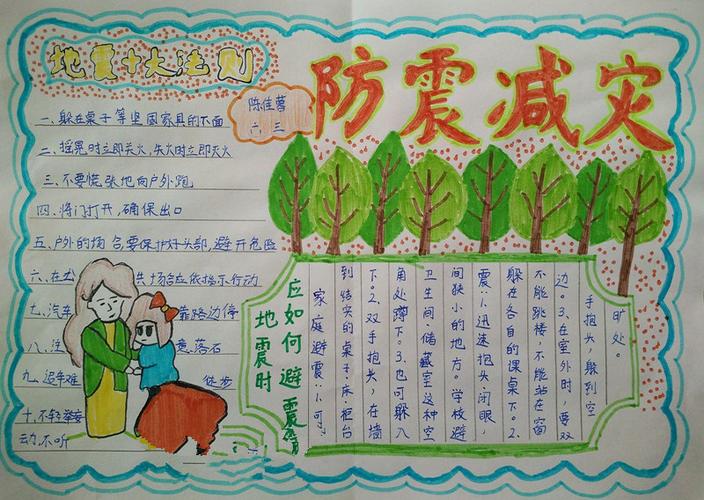 地震十大法则
陈佳蓉
六.三
防震减灾
一、躲在桌子等坚固家具的下面
二、摇晃时立即关火,失火时立即灭火
三、不要慌张地向户外跑
四、将门打开,确保出口
五、户外的场合,要保护好头部,避开危险
六、在公 共场合应依指示行动
七、汽车 靠路边停
八、注 意、落石
九、避难 徒步
十、不轻举妄
动,不听
地震时
应如何避震
家庭避震:1.可
到结实的桌子、床、柜台
下。2.双手抱头,在墙
角处蹲下。3.也可躲入
卫生间、储藏室这种空
间狭小的地方。学校避
震:1.迅速抱头、闭眼,
躲在各自的课桌下。2.
不能跳楼,不能站在窗
边。3.在室外时,要双
手抱头,躲到空
旷处。